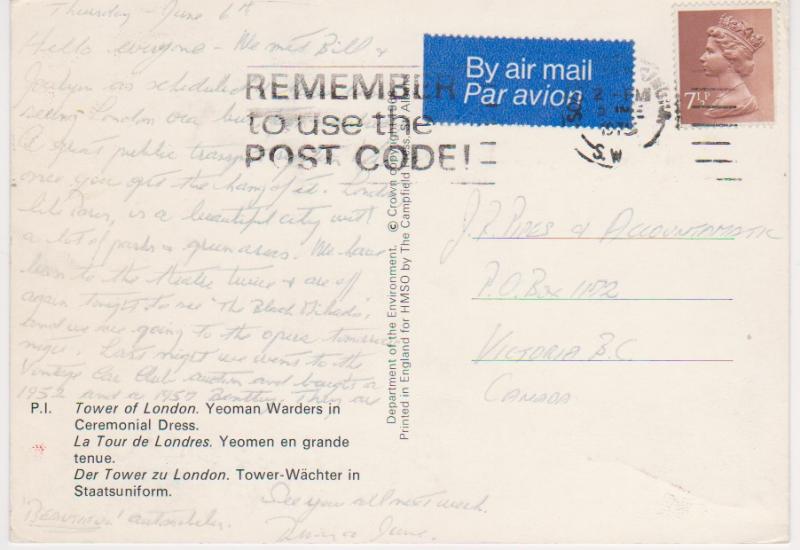 Thursday - June 6th
Hello everyone - We met Bill &
Jocelyn as scheduled
seeing London via bus
A great public transport
once you get the hang of it. London
like Paris, is a beautiful city with
a lot of parks & green areas. We have
been to the theatre twice & are off
again tonight to see "The Black Mikado",
and we are going to the opera tomorrow
night. Last night we went to the
Vintage Car Club auction and bought a
1952 and a 1957 Bentley. They are
"BEAUTIFUL" automobiles.
See you all next week.
June.
REMEMBER
to use the
POST CODE!
By air mail
Par avion
2 - PM
S.W.
7½P
Department of the Environment. © Crown copyright
Printed in England for HMSO by The Campfield Press, St. Al
J.R. PIPES & ACCOUNTAMATIC
P.O. BOX 1152
VICTORIA B.C.
CANADA
P.I. Tower of London. Yeoman Warders in
Ceremonial Dress.
La Tour de Londres. Yeomen en grande
tenue.
Der Tower zu London. Tower-Wächter in
Staatsuniform.